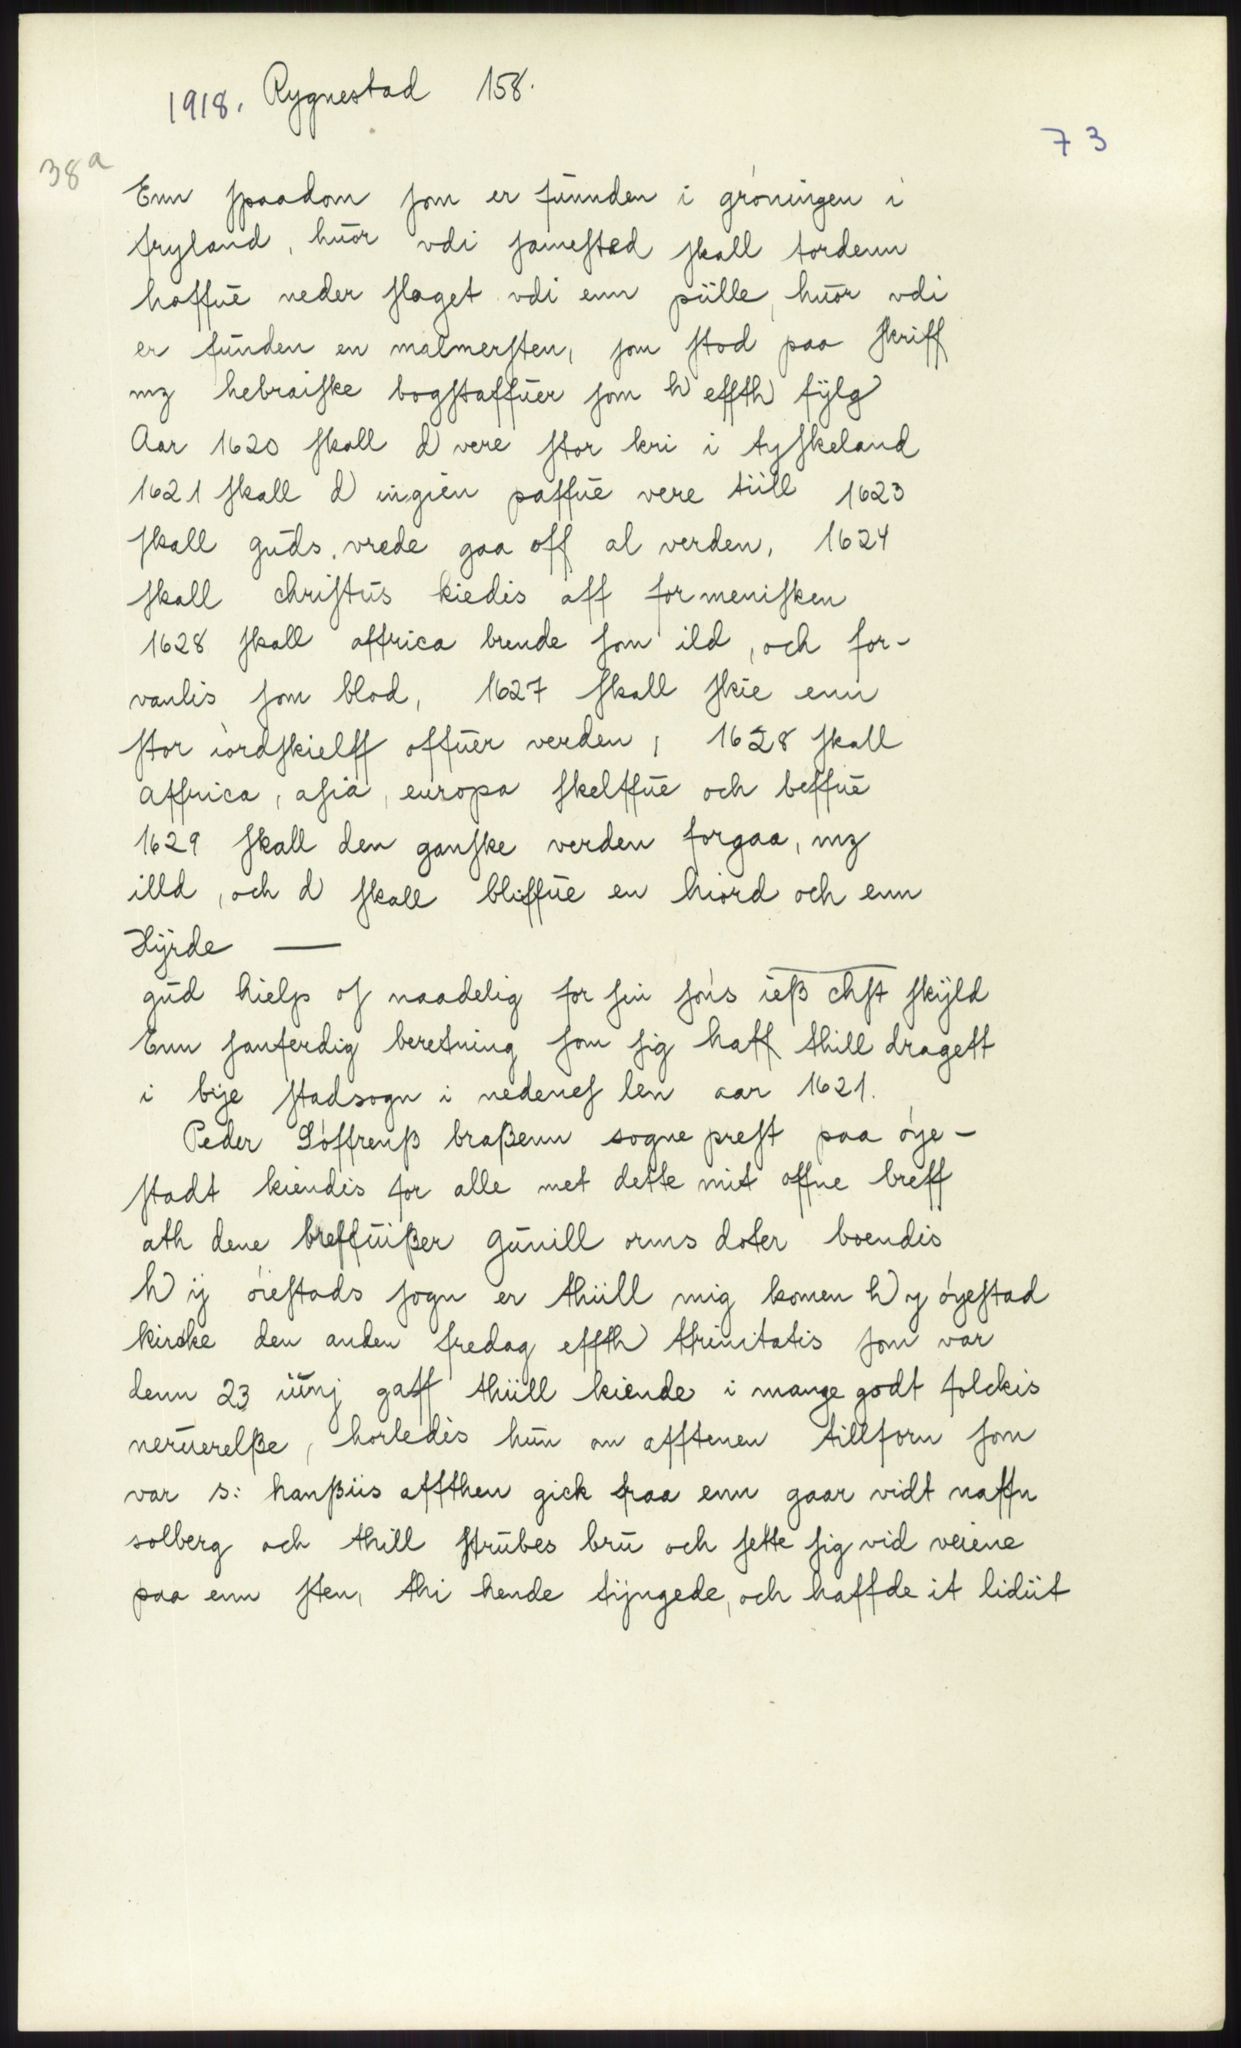 1918. Rygnestad 158.
73
38a
Enn spaadom som er fŭnnden i gróningen i
fryland, hŭor vdi samested skall tordenn
haffŭe neder slaget vdi enn pülle, hŭor vdi
er fŭnden en malmersten, som stod paa skriff
mz hebraiske bogstaffŭer som h effth fÿlg
Aar 1620 skall d vere stor kri i tyskeland
1621 skall d ingien paffŭe vere tiill 1623
skall gŭds vrede gaa off al verden, 1624
skall christŭs kiedis aff for menisken
1628 skall affrica brende som ild, och for-
vanlis som blod, 1627 skall skie enn
stor iordskielff offŭer verden, 1628 skall
Affrica, asia, europa skelffŭe och beffŭe
1629 skall den ganske verden forgaa, mz
illd, och d skall bliffŭe en hiord och enn
Hÿrde —
gŭd hielp os naadelig for sin sóns ieß chst skÿld
Enn sanferdig beretning som sig haff thill dragett
i bÿe stadsogn i nedenes len aar 1621.
Peder Sóffrenß braßenn sogne prest paa óye-
stadt kiendis for alle met dette mit offne breff
ath dene breffŭißer Gŭnill orms doter boendis
h ij óiestads sogn er thiill mig komen h y óyestad
kircke den anden fredag effth thrinitatis som var
denn 23 iŭnj gaff thiill kiende i mange godt folckis
nerŭerelße, horledis hŭn om afftenen tillforn som
var s: hanßiis affthen gick fraa enn gaar vidt naffn
solberg och thill strŭbes brŭ och sette sig vid veiene
paa enn sten, thi hende tÿngede, och haffde it lidüt